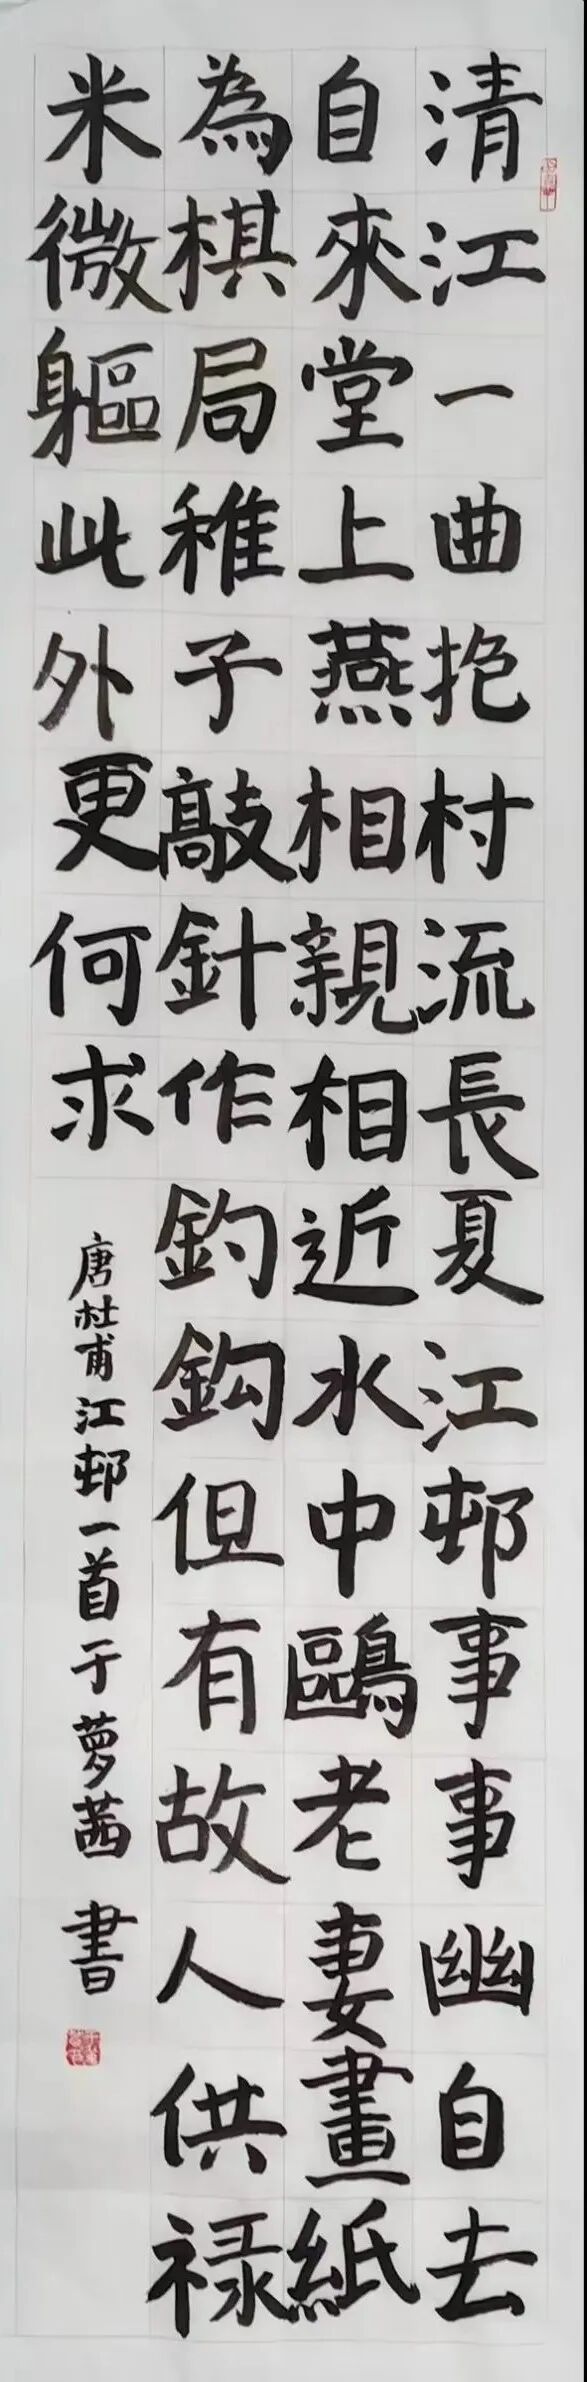 清江一曲抱村流長夏江邨事事幽自去
自來堂上燕相親相近水中鷗老妻畫紙
為棋局稚子敲針作釣鈎但有故人供禄
米微軀此外更何求
唐杜甫江邨一首于萝茜書